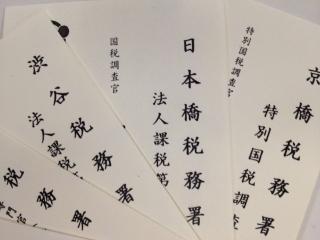 特別国税調査官
京橋税務署
特別国税調査
日本橋税務署
法人課税第
国税調査官
渋谷税務署
法人課税
税務署
門官